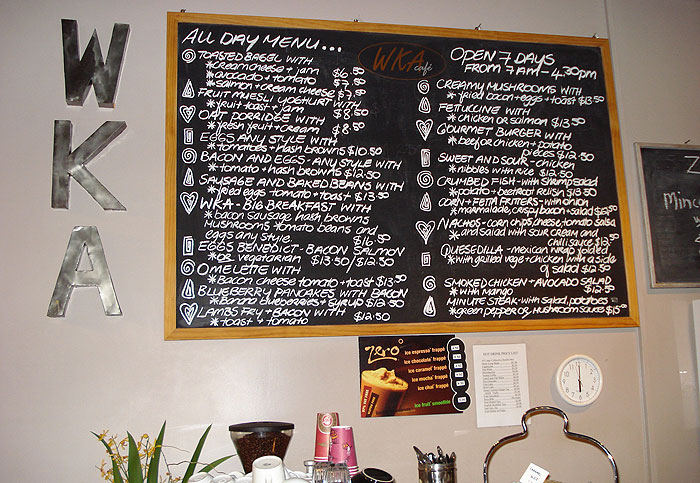 WKA
ALL DAY MENU...
TOASTED BAGEL WITH
*cream cheese + jam $6.50
*avocado + tomato $7.50
*salmon + cream cheese $7.50
FRUIT MUESLI YOGHURT WITH
*fruit toast + jam $8.50
OAT PORRIDGE WITH
*fresh fruit + cream $8.50
EGGS ANY STYLE WITH
*tomatoes + hash browns $10.50
BACON AND EGGS - ANY STYLE WITH
*tomato + hash browns $12.50
SAUSAGE AND BAKED BEANS WITH
*fried eggs tomato + toast $13.50
WKA - BIG BREAKFAST WITH
*bacon sausage hash browns
MUSHROOMS tomato beans and
eggs any style. $16.50
EGGS BENEDICT - BACON SALMON
*OR VEGETARIAN $13.50/$12.50
OMELETTE WITH
*Bacon cheese tomato + toast $13.50
BLUEBERRY PANCAKES WITH BACON
*Banana blueberries + syrup $12.50
LAMBS FRY + BACON WITH
*toast + tomato $12.50
WKA café
OPEN 7 DAYS
FROM 7AM - 4.30PM
CREAMY MUSHROOMS WITH
*fried bacon + eggs + toast $13.50
FETUCCINE WITH
*chicken or salmon $13.50
GOURMET BURGER WITH
*beef or chicken + potato
pieces $12.50
SWEET AND SOUR - chicken
*nibbles with rice $12.50
CRUMBED FISH - with shrimp salad
*potato + beetroot relish $13.50
CORN + FETTA FRITTERS - with onion
*marmalade, crispy bacon + salad $12.50
NACHOS - corn chips, cheese, tomato salsa
*and salad with sour cream and
chilli sauce $12.50
QUESEDILLA - mexican wrap folded
*with grilled vege + chicken with a side
of salad $12.50
SMOKED CHICKEN + AVOCADO SALAD
*with mango $12.50
MINUTE STEAK - with salad, potatoes
*green pepper or mushroom sauces $15.00
Z
Minc
Zero°
Ice espresso frappé
Ice chocolate frappé
Ice caramel frappé
Ice mocha frappé
Ice chai frappé
Ice fruit smoothie
HOT DRINK PRICE LIST